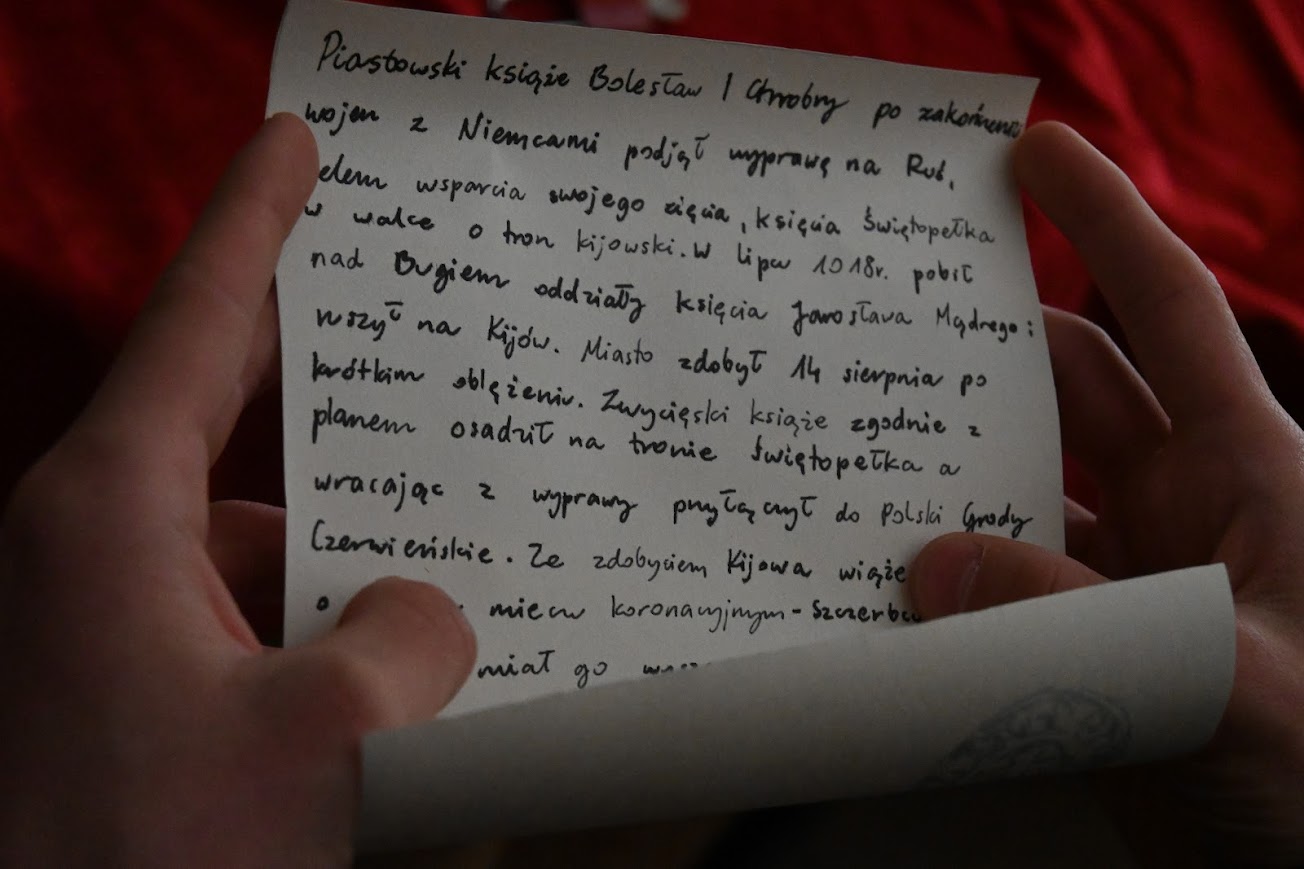 Piastowski książe Bolesław I Chrobry po zakończeniu
wojen z Niemcami podjął wyprawę na Ruś,
elem wsparcia swojego zięcia, księcia Świętopełka
w walce o tron kijowski. W lipcu 1018r. pobił
nad Bugiem oddziały księcia Jarosława Mądrego i
ruszył na Kijów. Miasto zdobył 14 sierpnia po
krótkim oblężeniu. Zwycięski książe zgodnie z
planem osadził na tronie Świętopełka a
wracając z wyprawy przyłączył do Polski Grody
Czerwieńskie. Ze zdobyciem Kijowa wiąże
o mieczu koronacyjnym - Szczerbcu
miał go